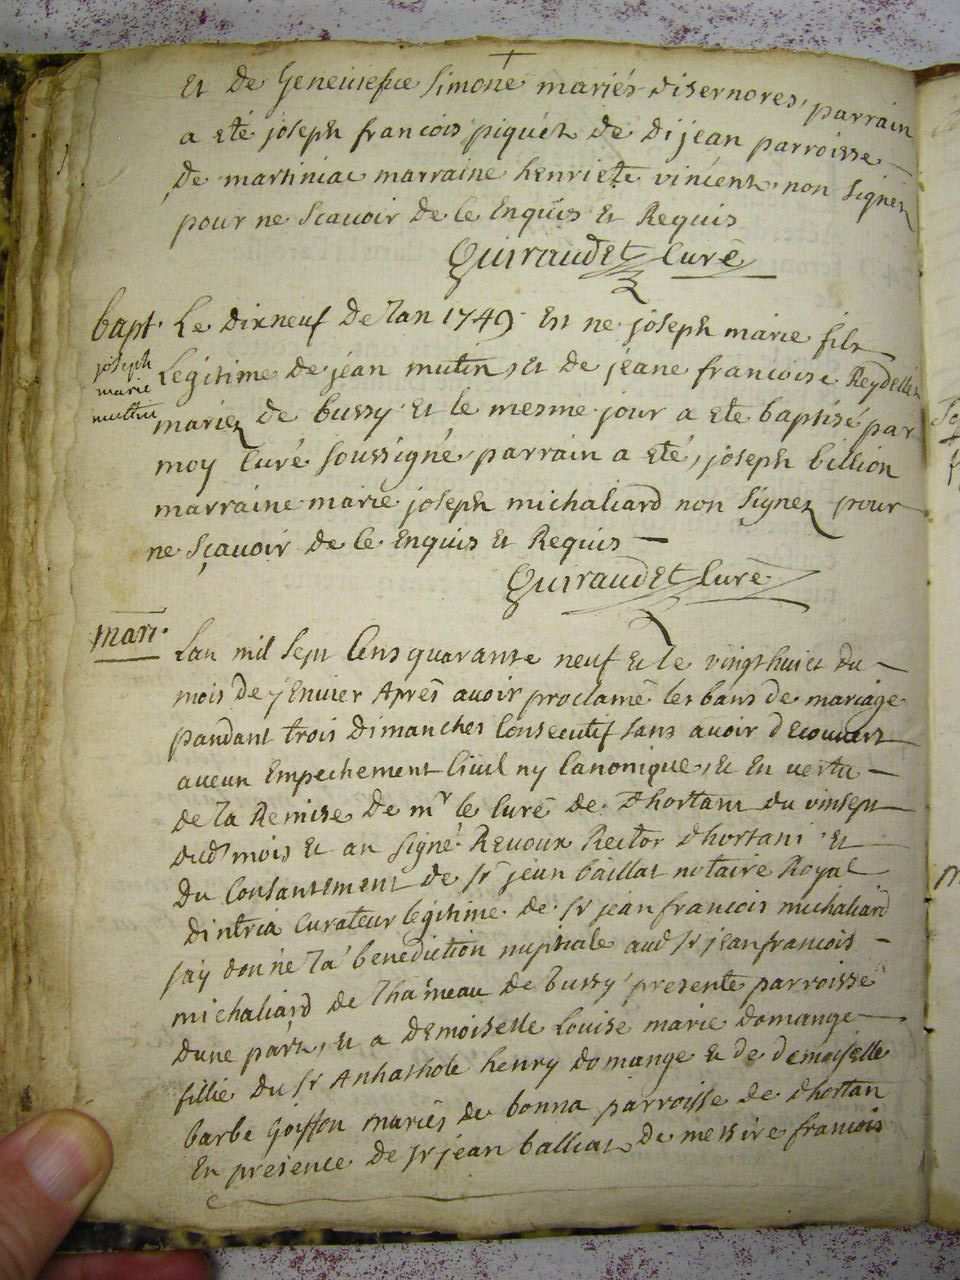 Et de Geneviefve Simone mariés disernores, parrain
a eté joseph francois piquet de dijean parroisse
de martiniac marraine henriete vincent non signez
pour ne scavoir de ce Enquis Et Requis
Quiraudet Curé
bapt. Le dixneuf de lan 1749 Est ne joseph marie fils
joseph marie mutin
Legitime de jean mutin, et de jeane francoise Reydellet
mariez de bussy Et le mesme jour a ete baptisé par
moy Curé soussigné, parrain a eté, joseph billion
marraine marie joseph michaliard non signez pour
ne sçavoir de ce Enquis Et Requis
Quiraudet Curé
mari. Lan mil sept Cens quarante neuf et le vingthuict du
mois de jenvier Aprés avoir proclamé les bans de mariage
pandant trois dimanches Consecutif sans avoir decouvert
aucun Empechement Civil ny Canonique, et En vertu
de la Remise de mr le Curé de dhortani du vinsept
dud mois et an signé Revoux Rector dhortani et
du Consantement de sr jean baillat notaire Royal
dintria Curateur legitime de sr jean francois michaliard
jay donné la benediction nuptiale aud sr jean francois
michaliard de lhameau de bussy presente parroisse
dune part, et a demoiselle Louise marie domange
fillie du sr Anhathole henry domange et de demoiselle
barbe Goiffon mariés de bonna parroisse de dhortan
En presence de sr jean balliat de messire francois